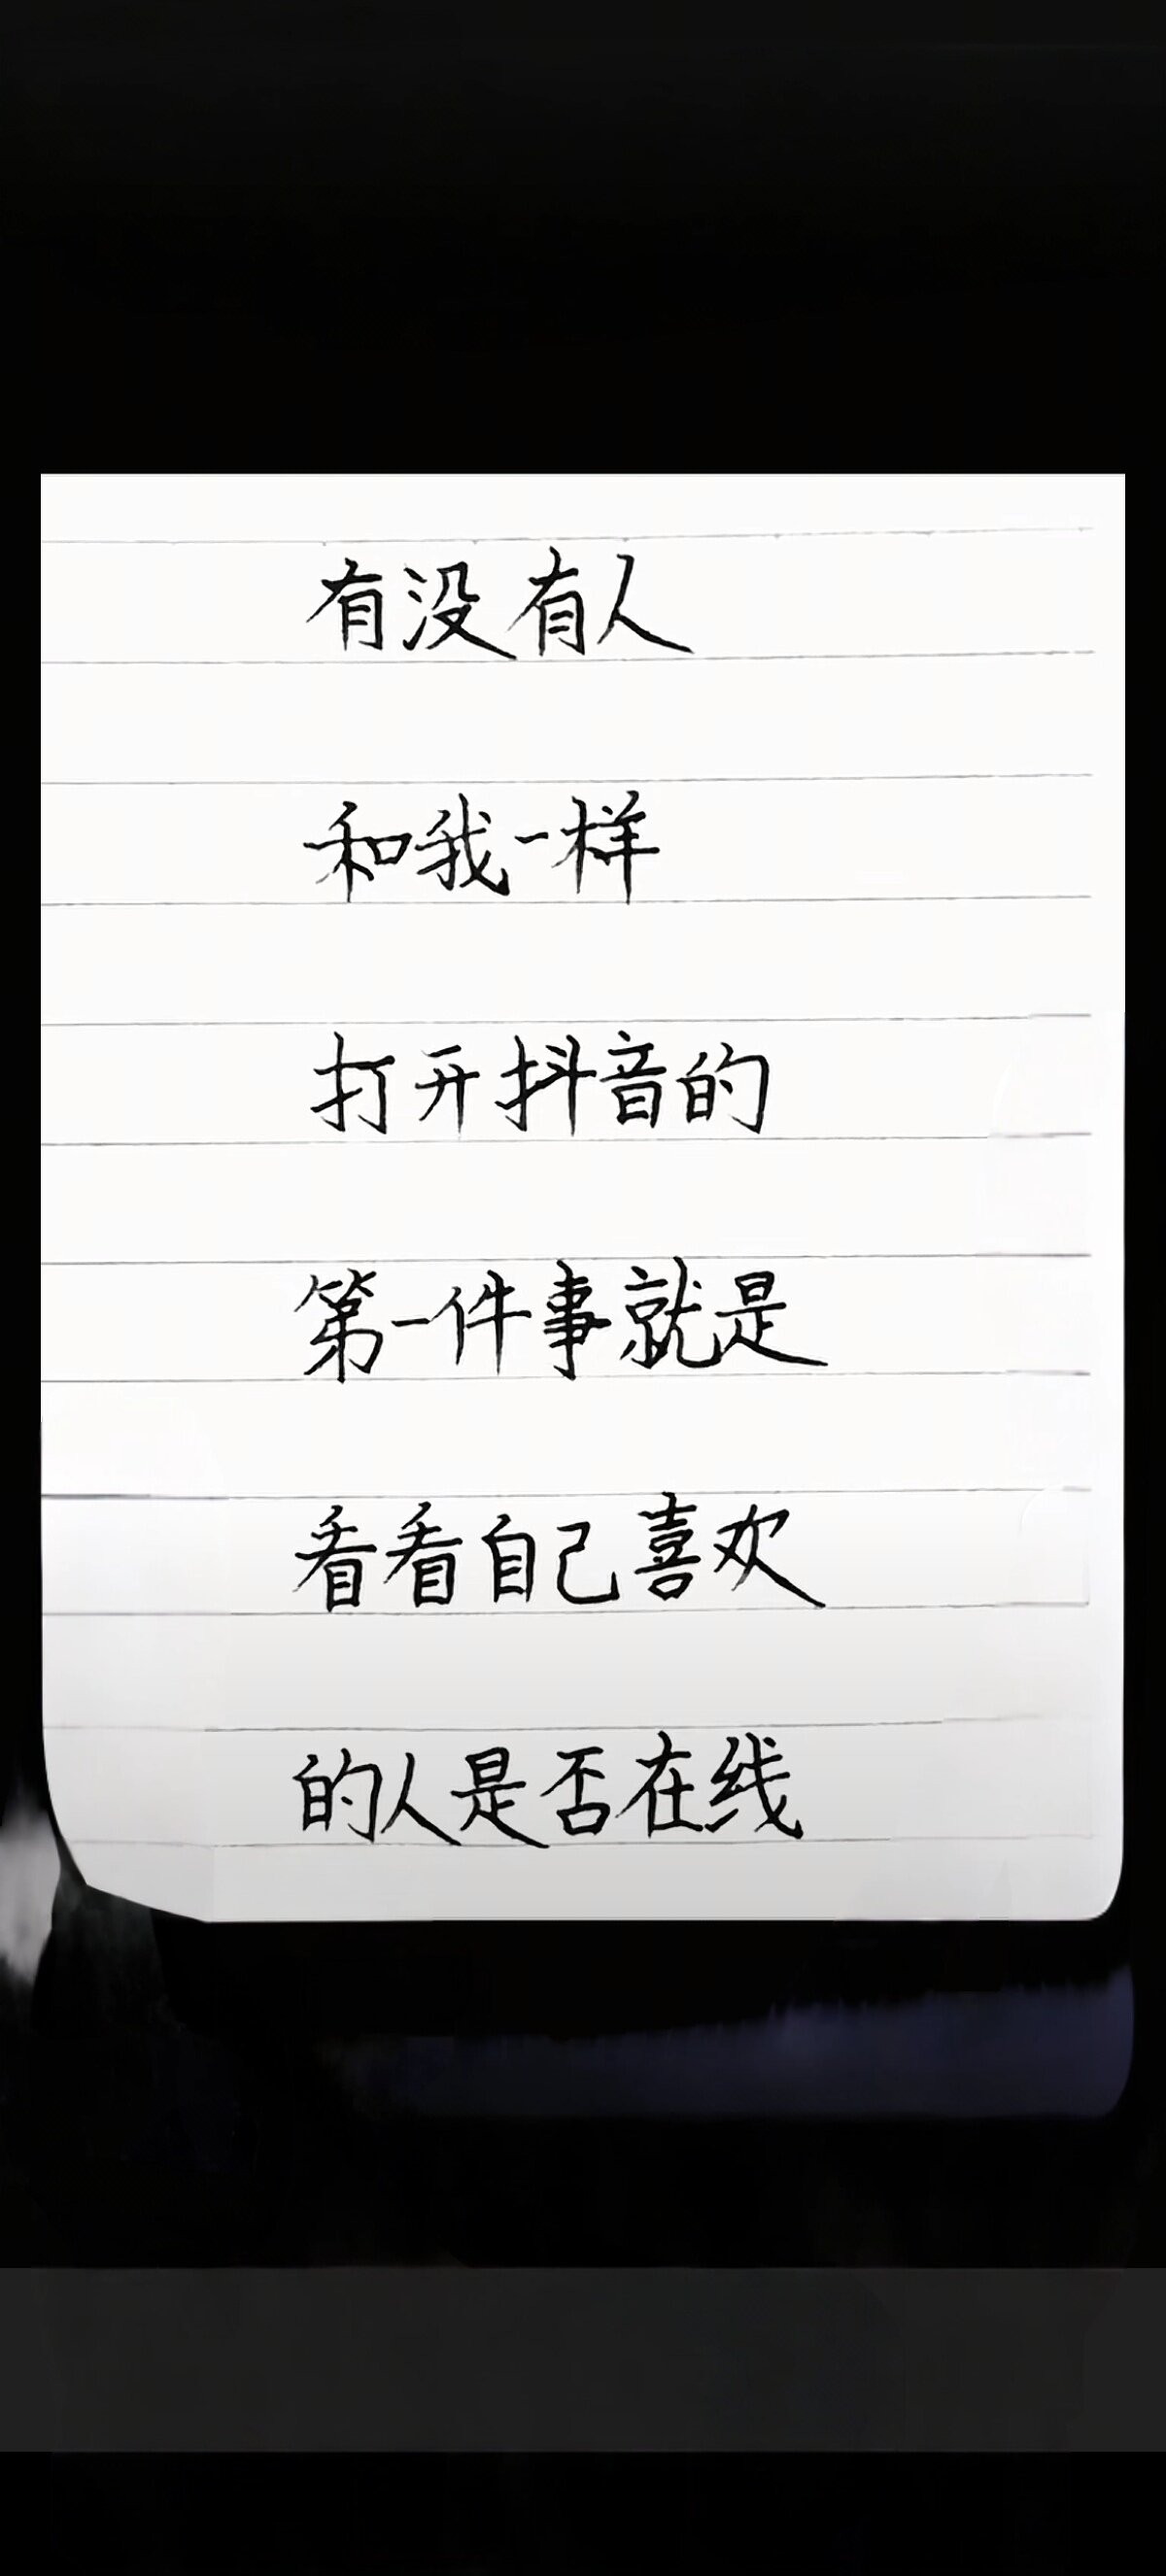 有没有人
和我一样
打开抖音的
第一件事就是
看看自己喜欢
的人是否在线